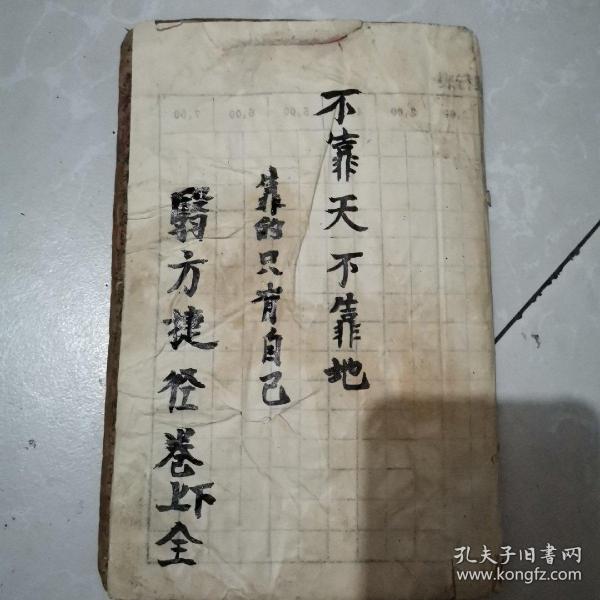 不靠天不靠地
靠的只有自己
醫方捷径卷上下全
7.00
6.00
孔夫子旧书网
www.kongfz.com